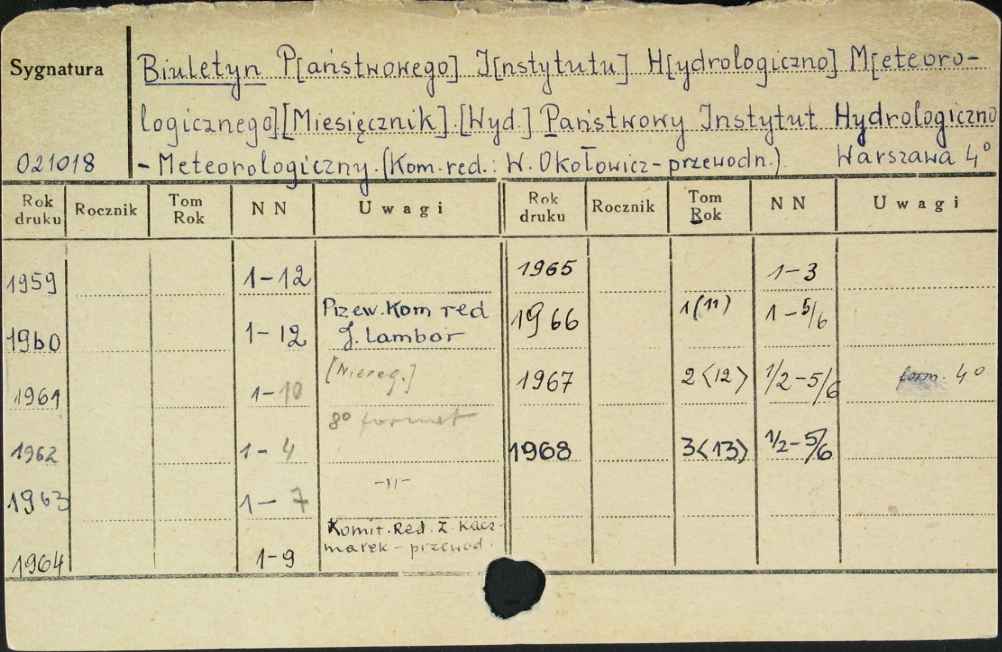 Sygnatura
Biuletyn P[aństwowego] I[nstytutu] H[ydrologiczno] M[eteoro-
logicznego] [Miesięcznik]. [Wyd.] Państwowy Instytut Hydrologiczno
021018 - Meteorologiczny. (Kom. red.: W. Okołowicz - przewodn.). Warszawa 4°
Rok druku Rocznik Tom Rok N N Uwagi Rok druku Rocznik Tom Rok N N Uwagi
1959 1-12
1960 1-12 Przew. Kom red J. Lambor
1961 1-10 [Niereg.]
1962 1-4 8° format
1963 1-7 -"-
1964 1-9 Komit. Red. Z. Kacz-
marek - przewod.
1965 1-3
1966 1(11) 1-5/6
1967 2<12> 1/2-5/6 form. 4°
1968 3<13> 1/2-5/6